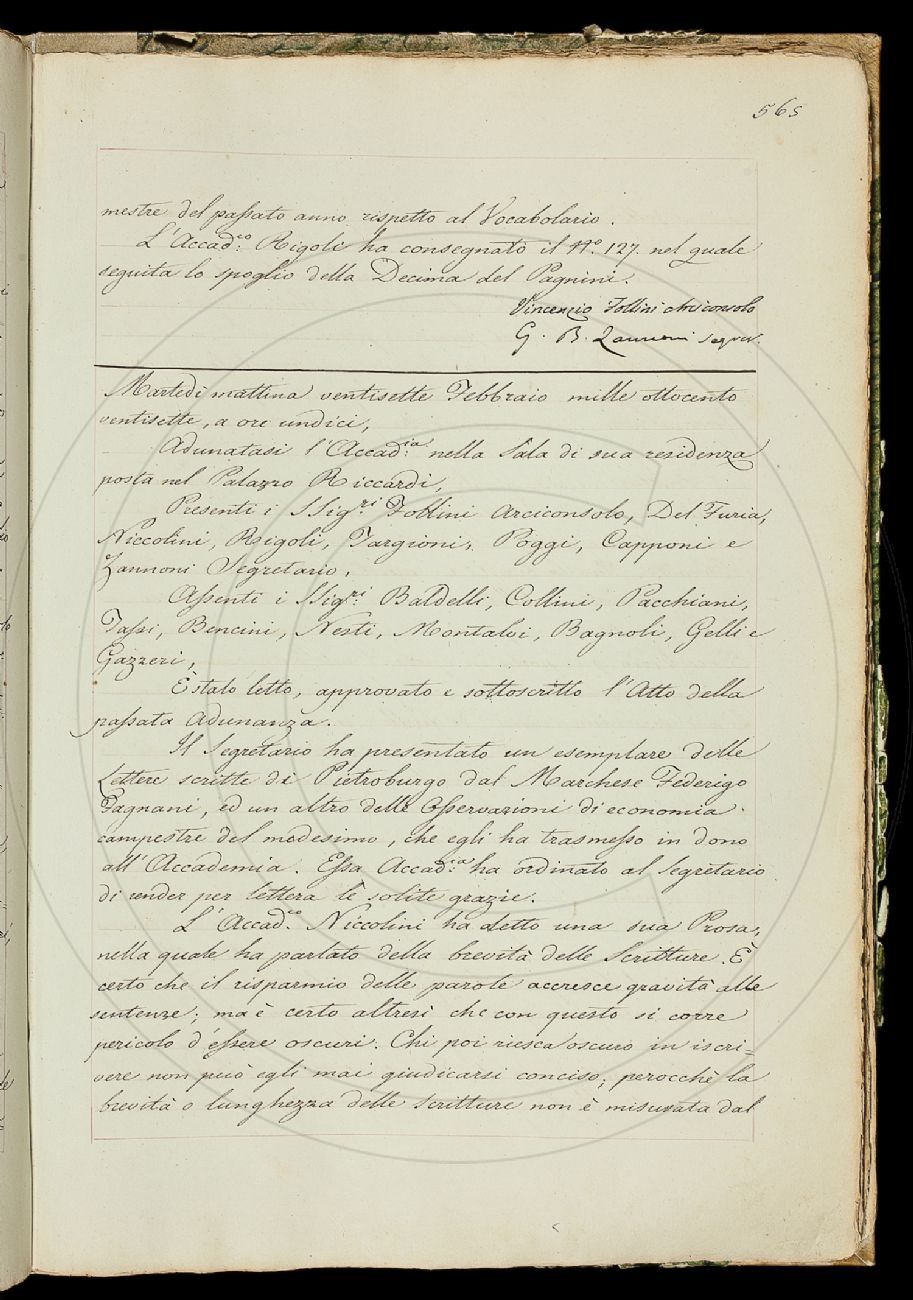 565
mestre del passato anno rispetto al Vocabolario.
L'Accad.co Rigoli ha consegnato il N.o 127. nel quale
seguita lo spoglio della Decima del Pagnini.
Vincenzio Follini Arciconsolo
G. B. Zannoni Segret.
Martedì mattina ventisette Febbraio mille ottocento
ventisette, a ore undici,
Adunatasi l'Accad.ia nella Sala di sua residenza
posta nel Palazzo Riccardi,
Presenti i SSig.ri Follini Arciconsolo, Del Furia,
Niccolini, Rigoli, Targioni, Poggi, Capponi e
Zannoni Segretario,
Assenti i SSig.ri Baldelli, Collini, Pacchiani,
Tassi, Bencini, Nesti, Montalvi, Bagnoli, Gelli e
Gazzeri,
È stato letto, approvato e sottoscritto l'Atto della
passata adunanza.
Il Segretario ha presentato un esemplare delle
Lettere scritte di Pietroburgo dal Marchese Federigo
Fagnani, ed un altro delle Osservazioni di economia
campestre del medesimo, che egli ha trasmesso in dono
all'Accademia. Essa Accad.ia ha ordinato al Segretario
di render per lettera le solite grazie.
L'Accad.co Niccolini ha letto una sua Prosa,
nella quale ha parlato della brevità delle Scritture. È
certo che il risparmio delle parole accresce gravità alle
sentenze; ma è certo altresì che con questo si corre
pericolo d'essere oscuri. Chi poi riesca oscuro in iscri=
vere non può egli mai giudicarsi conciso; perocchè la
brevità o lunghezza delle scritture non è misurata dal